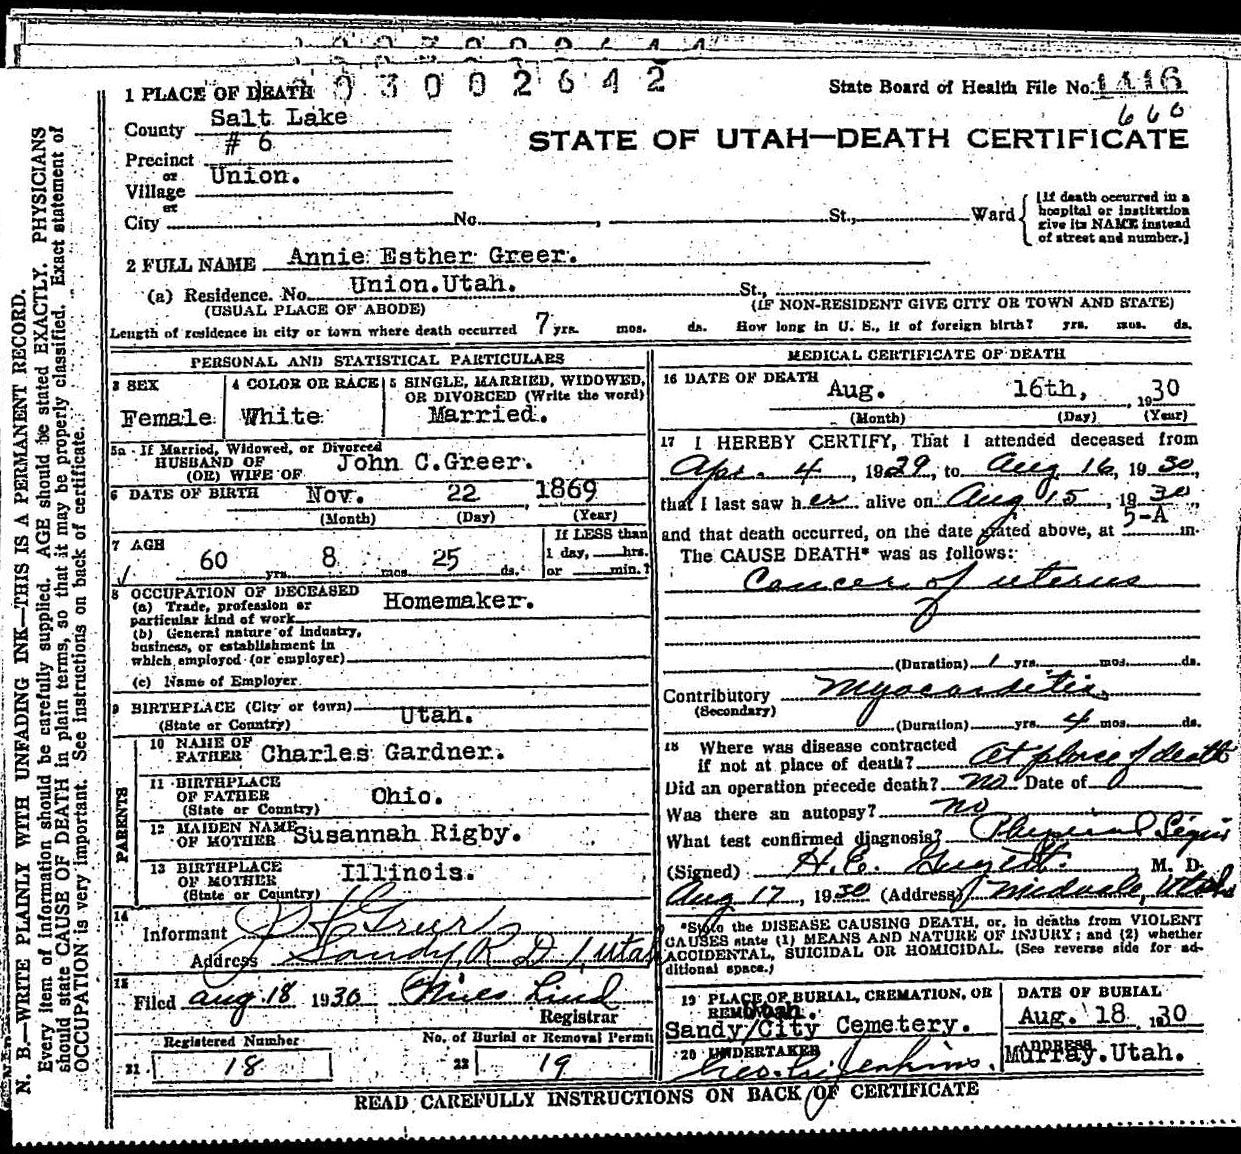 03002642
1 PLACE OF DEATH
State Board of Health File No. 1416
660
County Salt Lake
STATE OF UTAH—DEATH CERTIFICATE
Precinct # 6
or
Village Union.
or
City No. , St., Ward
[If death occurred in a
hospital or institution
give its NAME instead
of street and number.]
2 FULL NAME Annie Esther Greer.
(a) Residence. No. Union.Utah. St.,
(USUAL PLACE OF ABODE) (IF NON-RESIDENT GIVE CITY OR TOWN AND STATE)
Length of residence in city or town where death occurred 7 yrs. mos. ds. How long in U. S., if of foreign birth? yrs. mos. ds.
PERSONAL AND STATISTICAL PARTICULARS
3 SEX
Female
4 COLOR OR RACE
White
5 SINGLE, MARRIED, WIDOWED,
OR DIVORCED (Write the word)
Married.
5a If Married, Widowed, or Divorced
HUSBAND OF
(OR) WIFE OF John C.Greer.
6 DATE OF BIRTH Nov. 22 , 1869
(Month) (Day) (Year)
7 AGE
60 yrs. 8 mos. 25 ds.
If LESS than
1 day, hrs.
or min.?
8 OCCUPATION OF DECEASED
(a) Trade, profession or
particular kind of work Homemaker.
(b) General nature of industry,
business, or establishment in
which employed (or employer)
(c) Name of Employer
9 BIRTHPLACE (City or town)
(State or Country) Utah.
PARENTS
10 NAME OF
FATHER Charles Gardner.
11 BIRTHPLACE
OF FATHER Ohio.
(State or Country)
12 MAIDEN NAME
OF MOTHER Susannah Rigby.
13 BIRTHPLACE
OF MOTHER Illinois.
(State or Country)
14
Informant
Address Sandy, R D 1, Utah
15
Filed Aug. 18 1930 Miles Lind
Registrar
Registered Number
21 18
No. of Burial or Removal Permit
22 19
MEDICAL CERTIFICATE OF DEATH
16 DATE OF DEATH Aug. 16th, , 1930
(Month) (Day) (Year)
17 I HEREBY CERTIFY, That I attended deceased from
Apr. 4 , 1929, to Aug 16, 1930,
that I last saw her alive on Aug 15 , 1930,
and that death occurred, on the date stated above, at 5-A m.
The CAUSE DEATH* was as follows:
Cancer of uterus
(Duration) 1 yrs. mos. ds.
Contributory Myocarditis
(Secondary)
(Duration) yrs. 4 mos. ds.
18 Where was disease contracted
if not at place of death? At place of death
Did an operation precede death? no Date of
Was there an autopsy? no
What test confirmed diagnosis? Physical Signs
(Signed) H. E. M. D.
Aug 17, 1930 (Address) Midvale, Utah
*State the DISEASE CAUSING DEATH, or, in deaths from VIOLENT
CAUSES state (1) MEANS AND NATURE OF INJURY; and (2) whether
ACCIDENTAL, SUICIDAL OR HOMICIDAL. (See reverse side for ad-
ditional space.)
19 PLACE OF BURIAL, CREMATION, OR
REMOVAL Utah.
Sandy/City Cemetery.
DATE OF BURIAL
Aug. 18 , 1930
20 UNDERTAKER
Geo. Jenkins.
ADDRESS
Murray.Utah.
READ CAREFULLY INSTRUCTIONS ON BACK OF CERTIFICATE
N. B.—WRITE PLAINLY WITH UNFADING INK—THIS IS A PERMANENT RECORD.
Every item of information should be carefully supplied. AGE should be stated EXACTLY. PHYSICIANS
should state CAUSE OF DEATH in plain terms, so that it may be properly classified. Exact statement of
OCCUPATION is very important. See instructions on back of certificate.